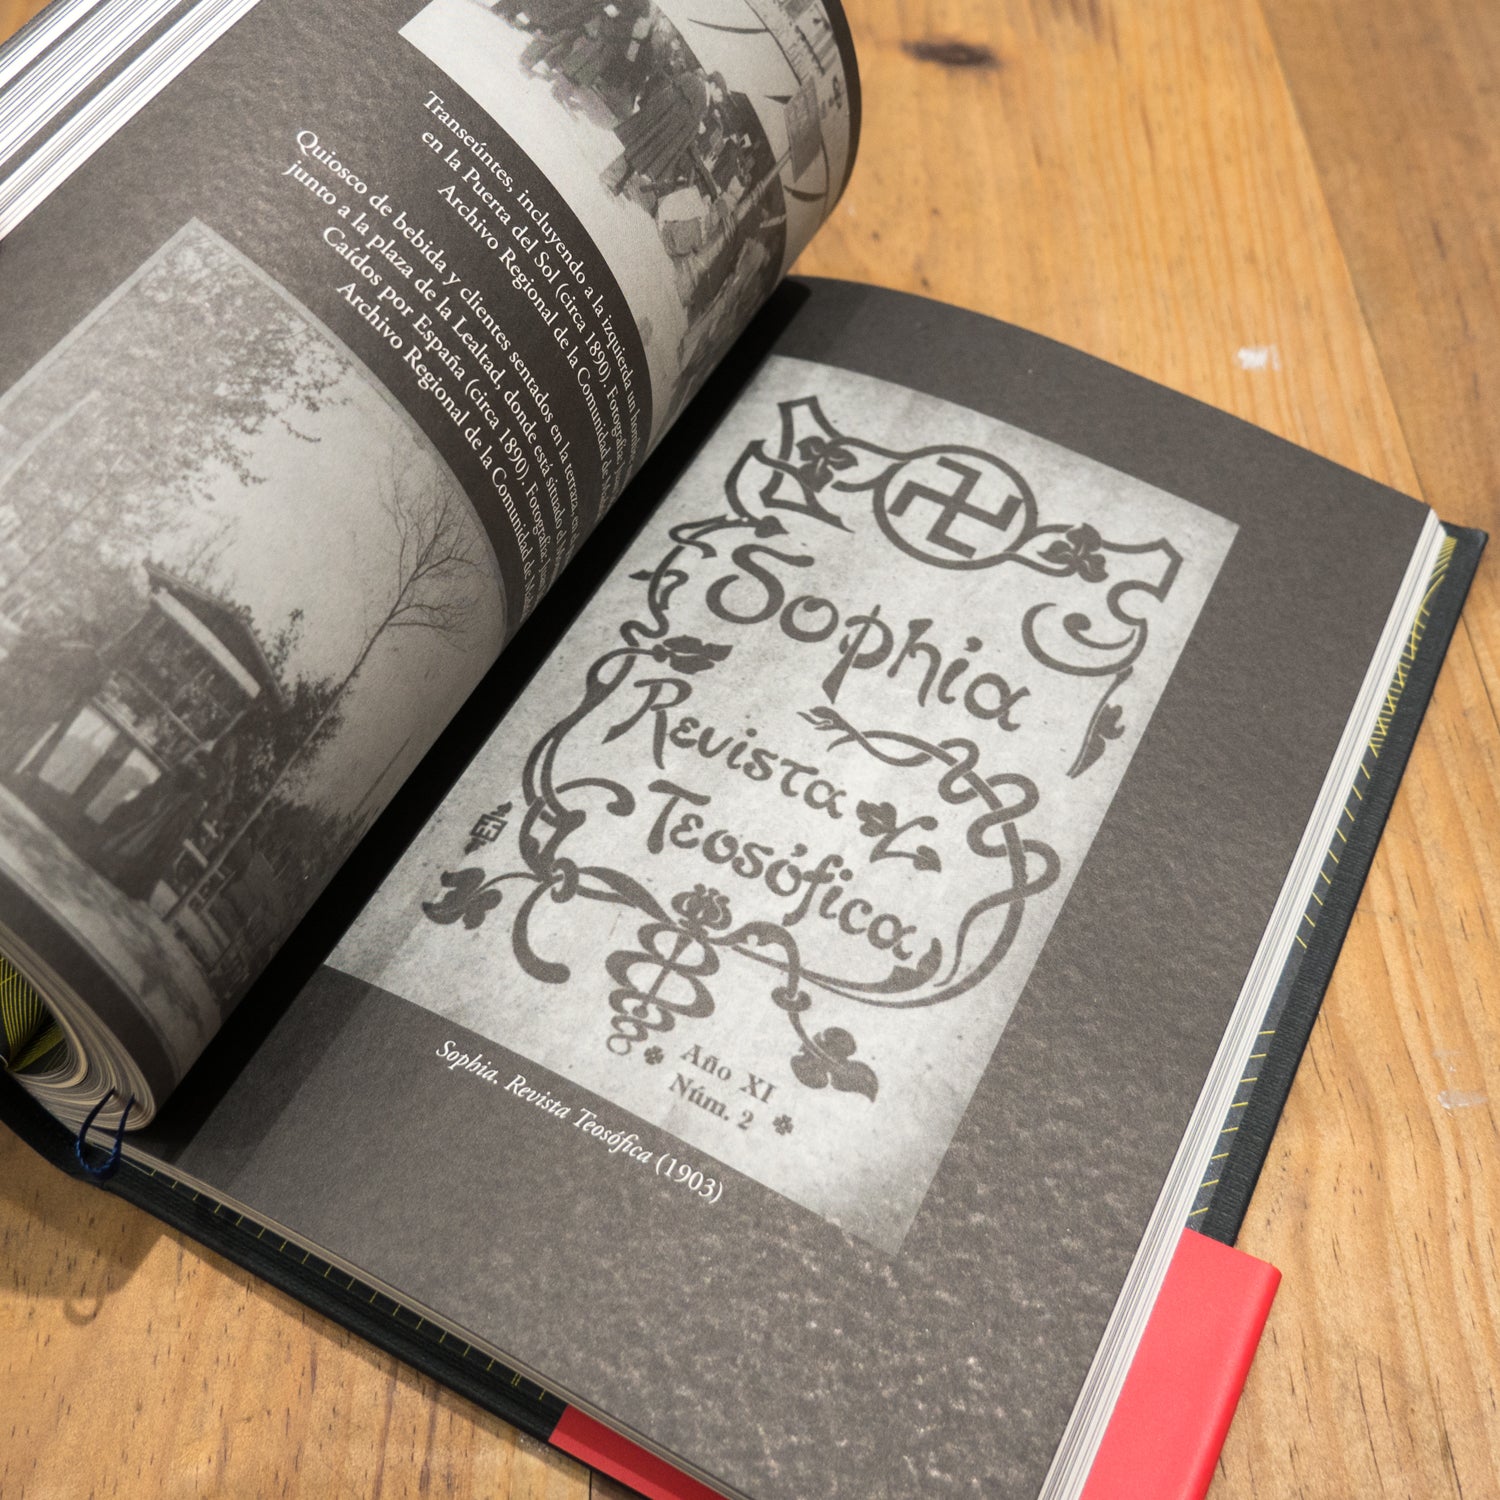 Transeúntes, incluyendo a la izquierda un
en la Puerta del Sol (circa 1890). Fotografía:
Archivo Regional de la Comunidad de
Quiosco de bebida y clientes sentados en la terraza, en
junto a la plaza de la Lealtad, donde está situado el
Caídos por España (circa 1890). Fotografía:
Archivo Regional de la Comunidad de
Sophia
Revista
Teosófica
Año XI
Núm. 2
Sophia. Revista Teosófica (1903)